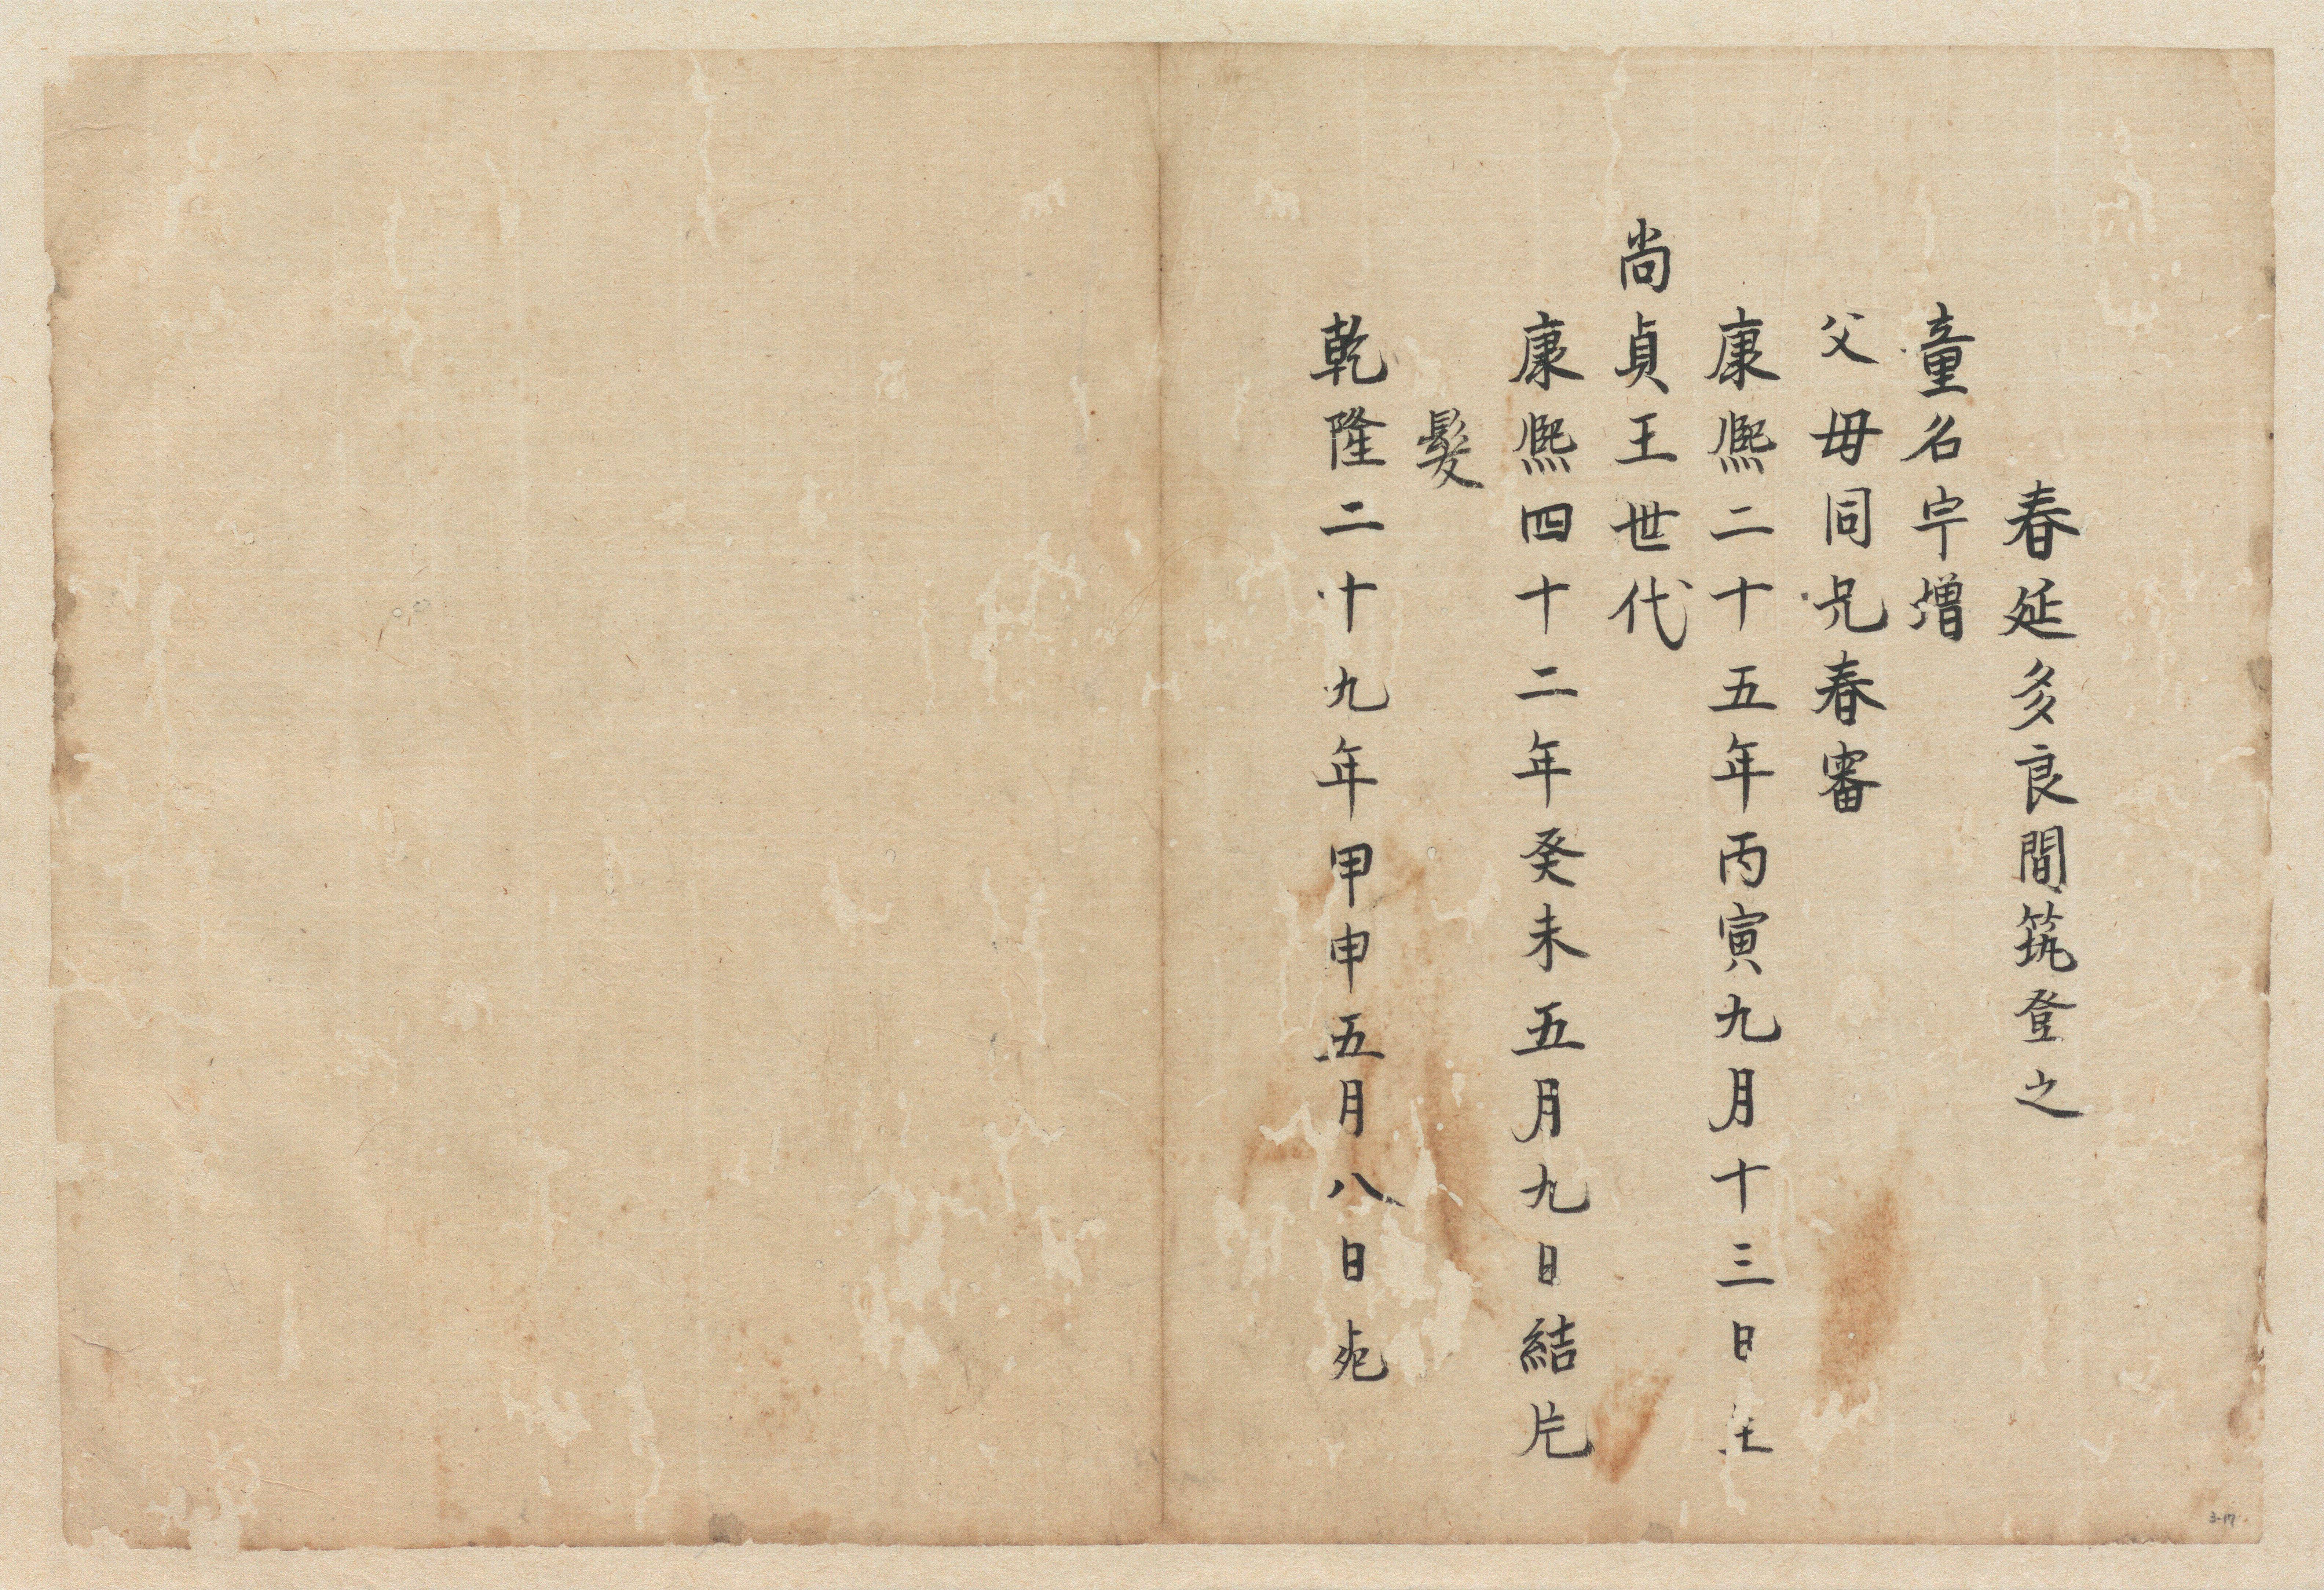 春延多良間筑登之
童名宇增
父母同兄春審
康熙二十五年丙寅九月十三日生
尚貞王世代
康熙四十二年癸未五月九日結片
髮
乾隆二十九年甲申五月八日死
3-17